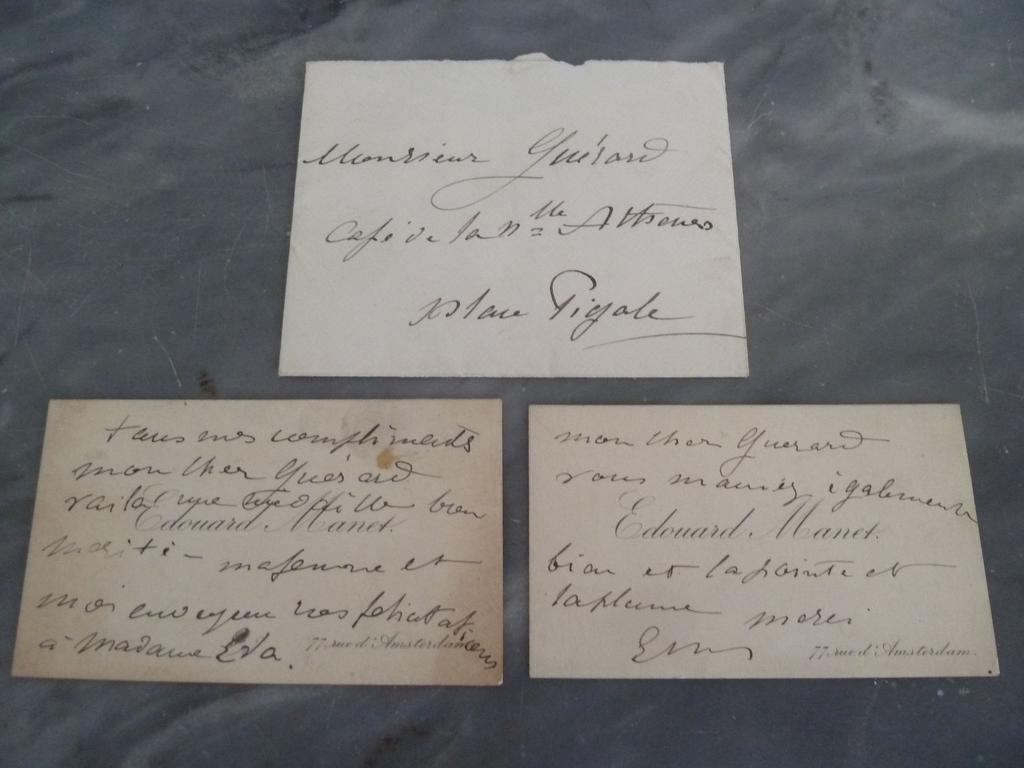 Monsieur Guérard
Café de la Nlle Athenes
place Pigale
tous mes compliments
mon cher Guérard
voilà une médaille bien
Edouard Manet.
mérité - ma femme et
moi envoyons nos félicitations
à Madame Eva.
77, rue d'Amsterdam.
mon cher Guerard
vous maniez également
Edouard Manet.
bien et la pointe et
la plume merci
77, rue d'Amsterdam.